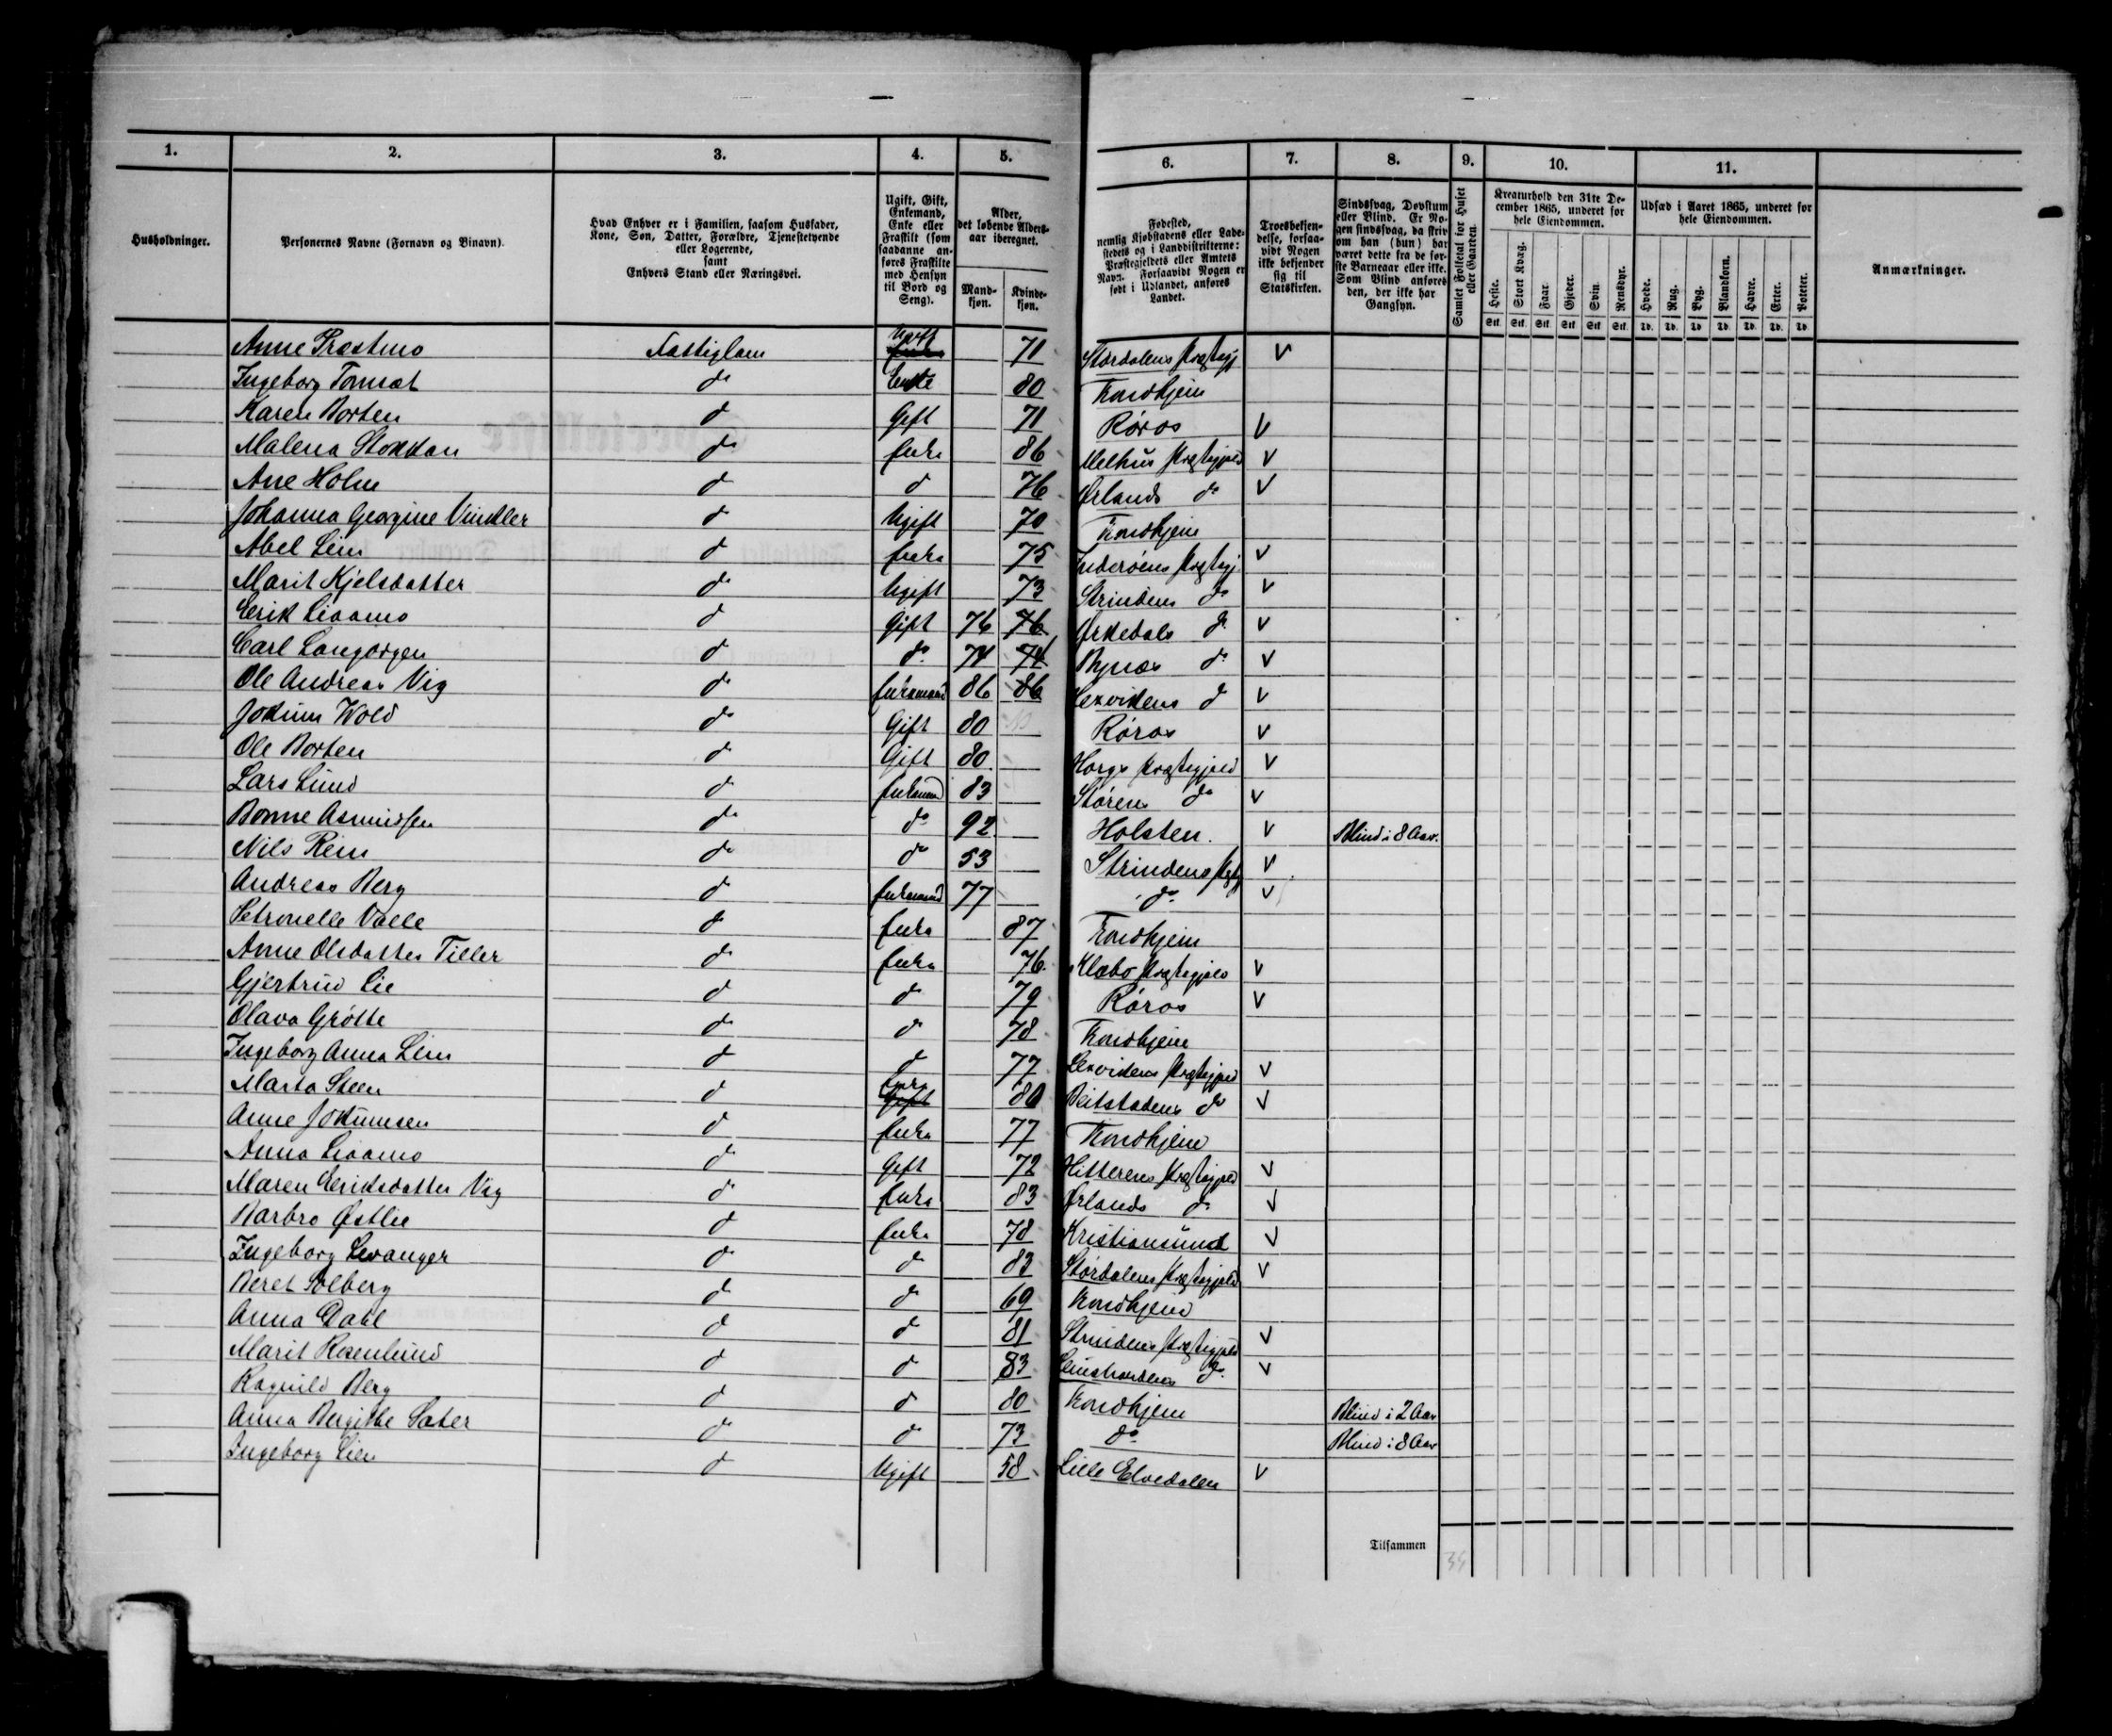 1. 2. 3. 4. 5. 6. 7. 8. 9. 10. 11.
Husholdninger.
Personernes Navne (Fornavn og Binavn).
Hvad Enhver er i Familien, saasom Husfader, Kone, Søn, Datter, Forældre, Tjenestetyende eller Logerende, samt Enhvers Stand eller Næringsvei.
Ugift, Gift, Enkemand, Enke eller Fraskilt (som saadanne anføres Fraskilte med Hensyn til Bord og Seng).
Alder, det løbende Alders-aar iberegnet.
Mand-kjøn. Kvinde-kjøn.
Fødested, nemlig Kjøbstadens eller Ladestedets og i Landdistrikterne: Præstegjeldets eller Amtets Navn. Forsaavidt Nogen er født i Udlandet, anføres Landet.
Troesbekjendelse, forsaavidt Nogen ikke bekjender sig til Statskirken.
Sindssvag, Døvstum eller Blind. Er Nogen sindssvag, da skrives om han (hun) har været dette fra de første Barneaar eller ikke. Som Blind anføres den, der ikke har Gangsyn.
Gamlet Folketal for Huset eller Gaarden.
Kreaturhold den 31te December 1865, underet for hele Eiendommen.
Heste. Stort Kvæg. Faar. Gjeder. Svin. Rensdyr.
Stk. Stk. Stk. Stk. Stk. Stk.
Udsæd i Aaret 1865, underet for hele Eiendommen.
Hvede. Rug. Byg. Blandkorn. Havre. Erter. Poteter.
Td. Td. Td. Td. Td. Td. Td.
Anmærkninger.
Anne Præstmo Fattiglem Ugift 71 Størdalens Præstegj v
Ingeborg Tonnæt do Enke 80 Trondhjem
Karen Borten do Gift 71 Røros v
Malena Stokkan do Enke 86 Melhus Præstegjeld v
Ane Holm do do 76 Ørlands do v
Johanna Georgine Vindler do Ugift 70 Trondhjem
Abel Lein do Enke 75 Inderøens Præstegj. v
Marit Kjelsdatter do Ugift 73 Strindens do v
Erik Liaamo do Gift 76 76 Ørkedals do v
Carl Langørgen do do 74 74 Bynæs do v
Ole Andreas Vig do Enkemand 86 86 Lexvikens do v
Jokum Wold do Gift 80 Røros v
Ole Borten do Gift 80 Horgs Præstegjeld v
Lars Lund do Enkemand 83 Størens do v
Bonne Asmussen do do 92 Holsten. v Blind i 8 Aar.
Nils Rein do do 53 Strindens Pgj v
Andreas Berg do Enkemand 77 do v
Petronelle Valle do Enke 87 Trondhjem
Anne Olsdatter Tiller do Enke 76 Klæbo Præstegjeld v
Gjertrud Lie do do 79 Røros v
Olava Grötte do do 78 Trondhjem
Ingeborg Anna Lein do do 77 Lexvikens Præstegjeld v
Marta Steen do Gift Enke 80 Beitstadens do v
Anne Jokumsen do Enke 77 Trondhjem
Anna Liaamo do Gift 72 Hitterens Præstegjeld v
Maren Eriksdatter Vig do Enke 83 Ørlands do v
Barbro Østlie do Enke 78 Kristiansund v
Ingeborg Levanger do do 83 Størdalens Præstegjeld v
Beret Solberg do do 69 Trondhjem
Anna Dahl do do 81 Strindens Præstegjeld v
Marit Rosenlund do do 83 Leinstrandens do v
Ragnild Berg do do 80 Trondhjem Blind i 2 Aar
Anna Bergithe Sæter do do 73 do Blind i 8 Aar
Ingeborg Lien do Ugift 58 Lille Elvedalen v
Tilsammen 34